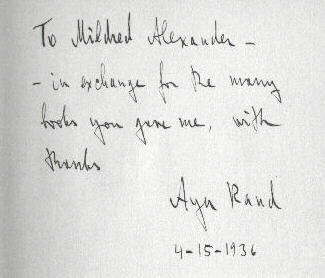 To Mildred Alexander –
– in exchange for the many
books you gave me, with
thanks
Ayn Rand
4-15-1936